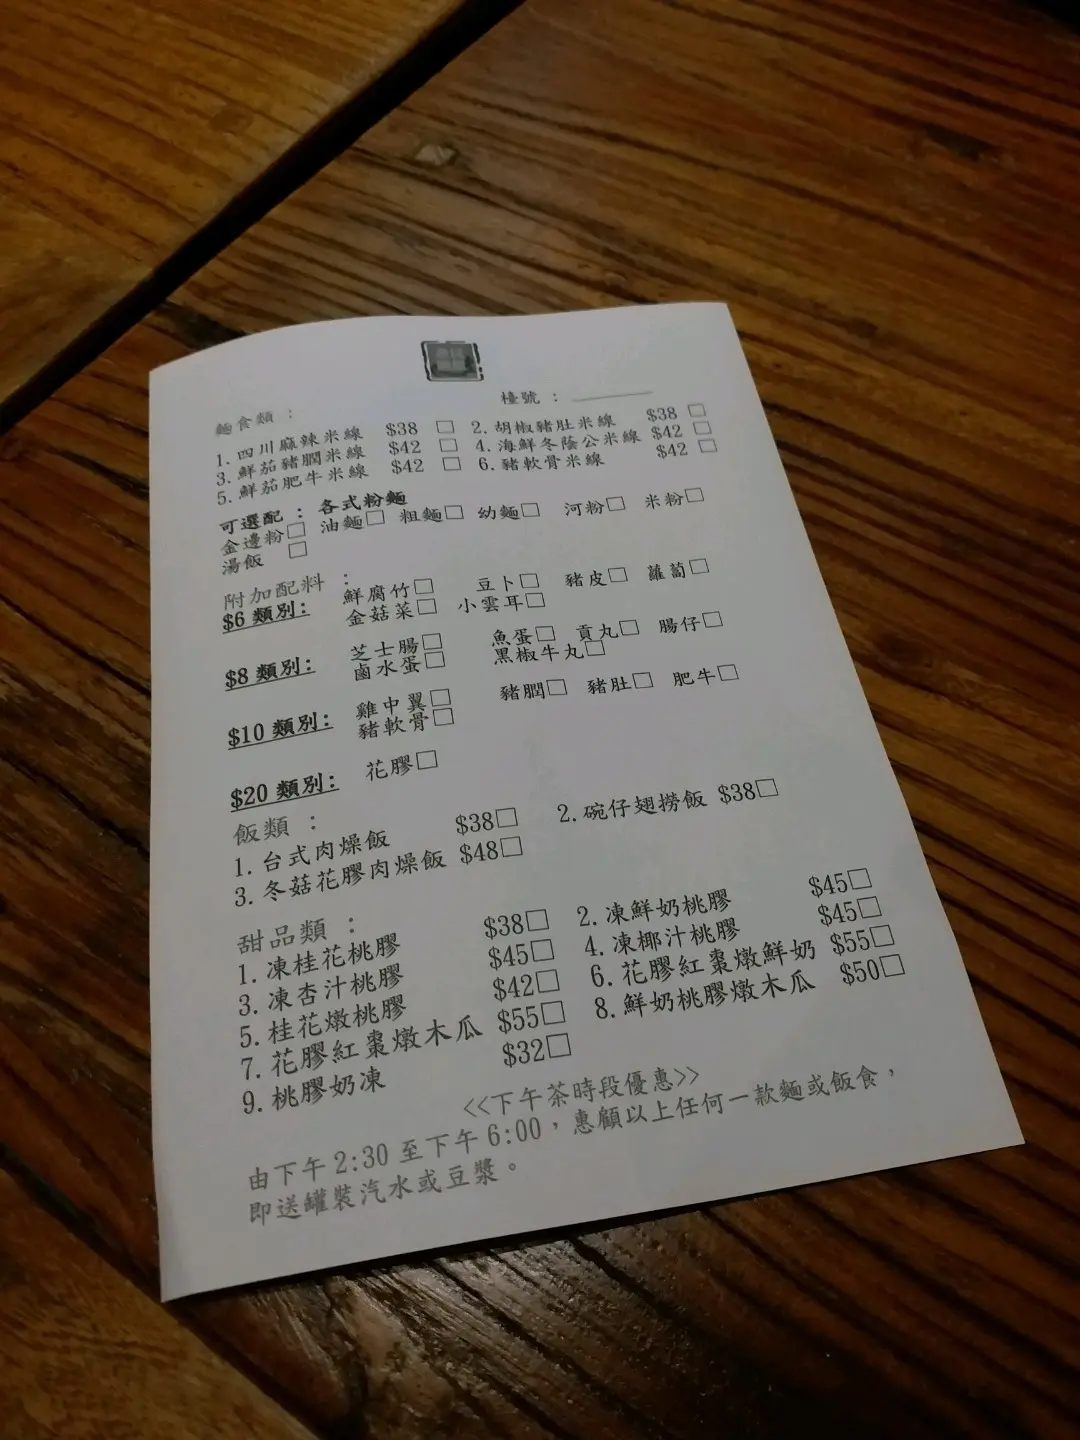 檯號：
麵食類：
1. 四川麻辣米線 $38 □ 2. 胡椒豬肚米線 $38 □
3. 鮮茄豬膶米線 $42 □ 4. 海鮮冬蔭公米線 $42 □
5. 鮮茄肥牛米線 $42 □ 6. 豬軟骨米線 $42 □
可選配：各式粉麵
金邊粉□ 油麵□ 粗麵□ 幼麵□ 河粉□ 米粉□
湯飯 □
附加配料：
$6 類別: 鮮腐竹□ 豆卜□ 豬皮□ 蘿蔔□
金菇菜□ 小雲耳□
$8 類別: 芝士腸□ 魚蛋□ 貢丸□ 腸仔□
鹵水蛋□ 黑椒牛丸□
$10 類別: 雞中翼□ 豬膶□ 豬肚□ 肥牛□
豬軟骨□
$20 類別: 花膠□
飯類：
1. 台式肉燥飯 $38□ 2. 碗仔翅撈飯 $38□
3. 冬菇花膠肉燥飯 $48□
甜品類：
1. 凍桂花桃膠 $38□ 2. 凍鮮奶桃膠 $45□
3. 凍杏汁桃膠 $45□ 4. 凍椰汁桃膠 $45□
5. 桂花燉桃膠 $42□ 6. 花膠紅棗燉鮮奶 $55□
7. 花膠紅棗燉木瓜 $55□ 8. 鮮奶桃膠燉木瓜 $50□
9. 桃膠奶凍 $32□
<<下午茶時段優惠>>
由下午 2:30 至下午 6:00，惠顧以上任何一款麵或飯食，
即送罐裝汽水或豆漿。